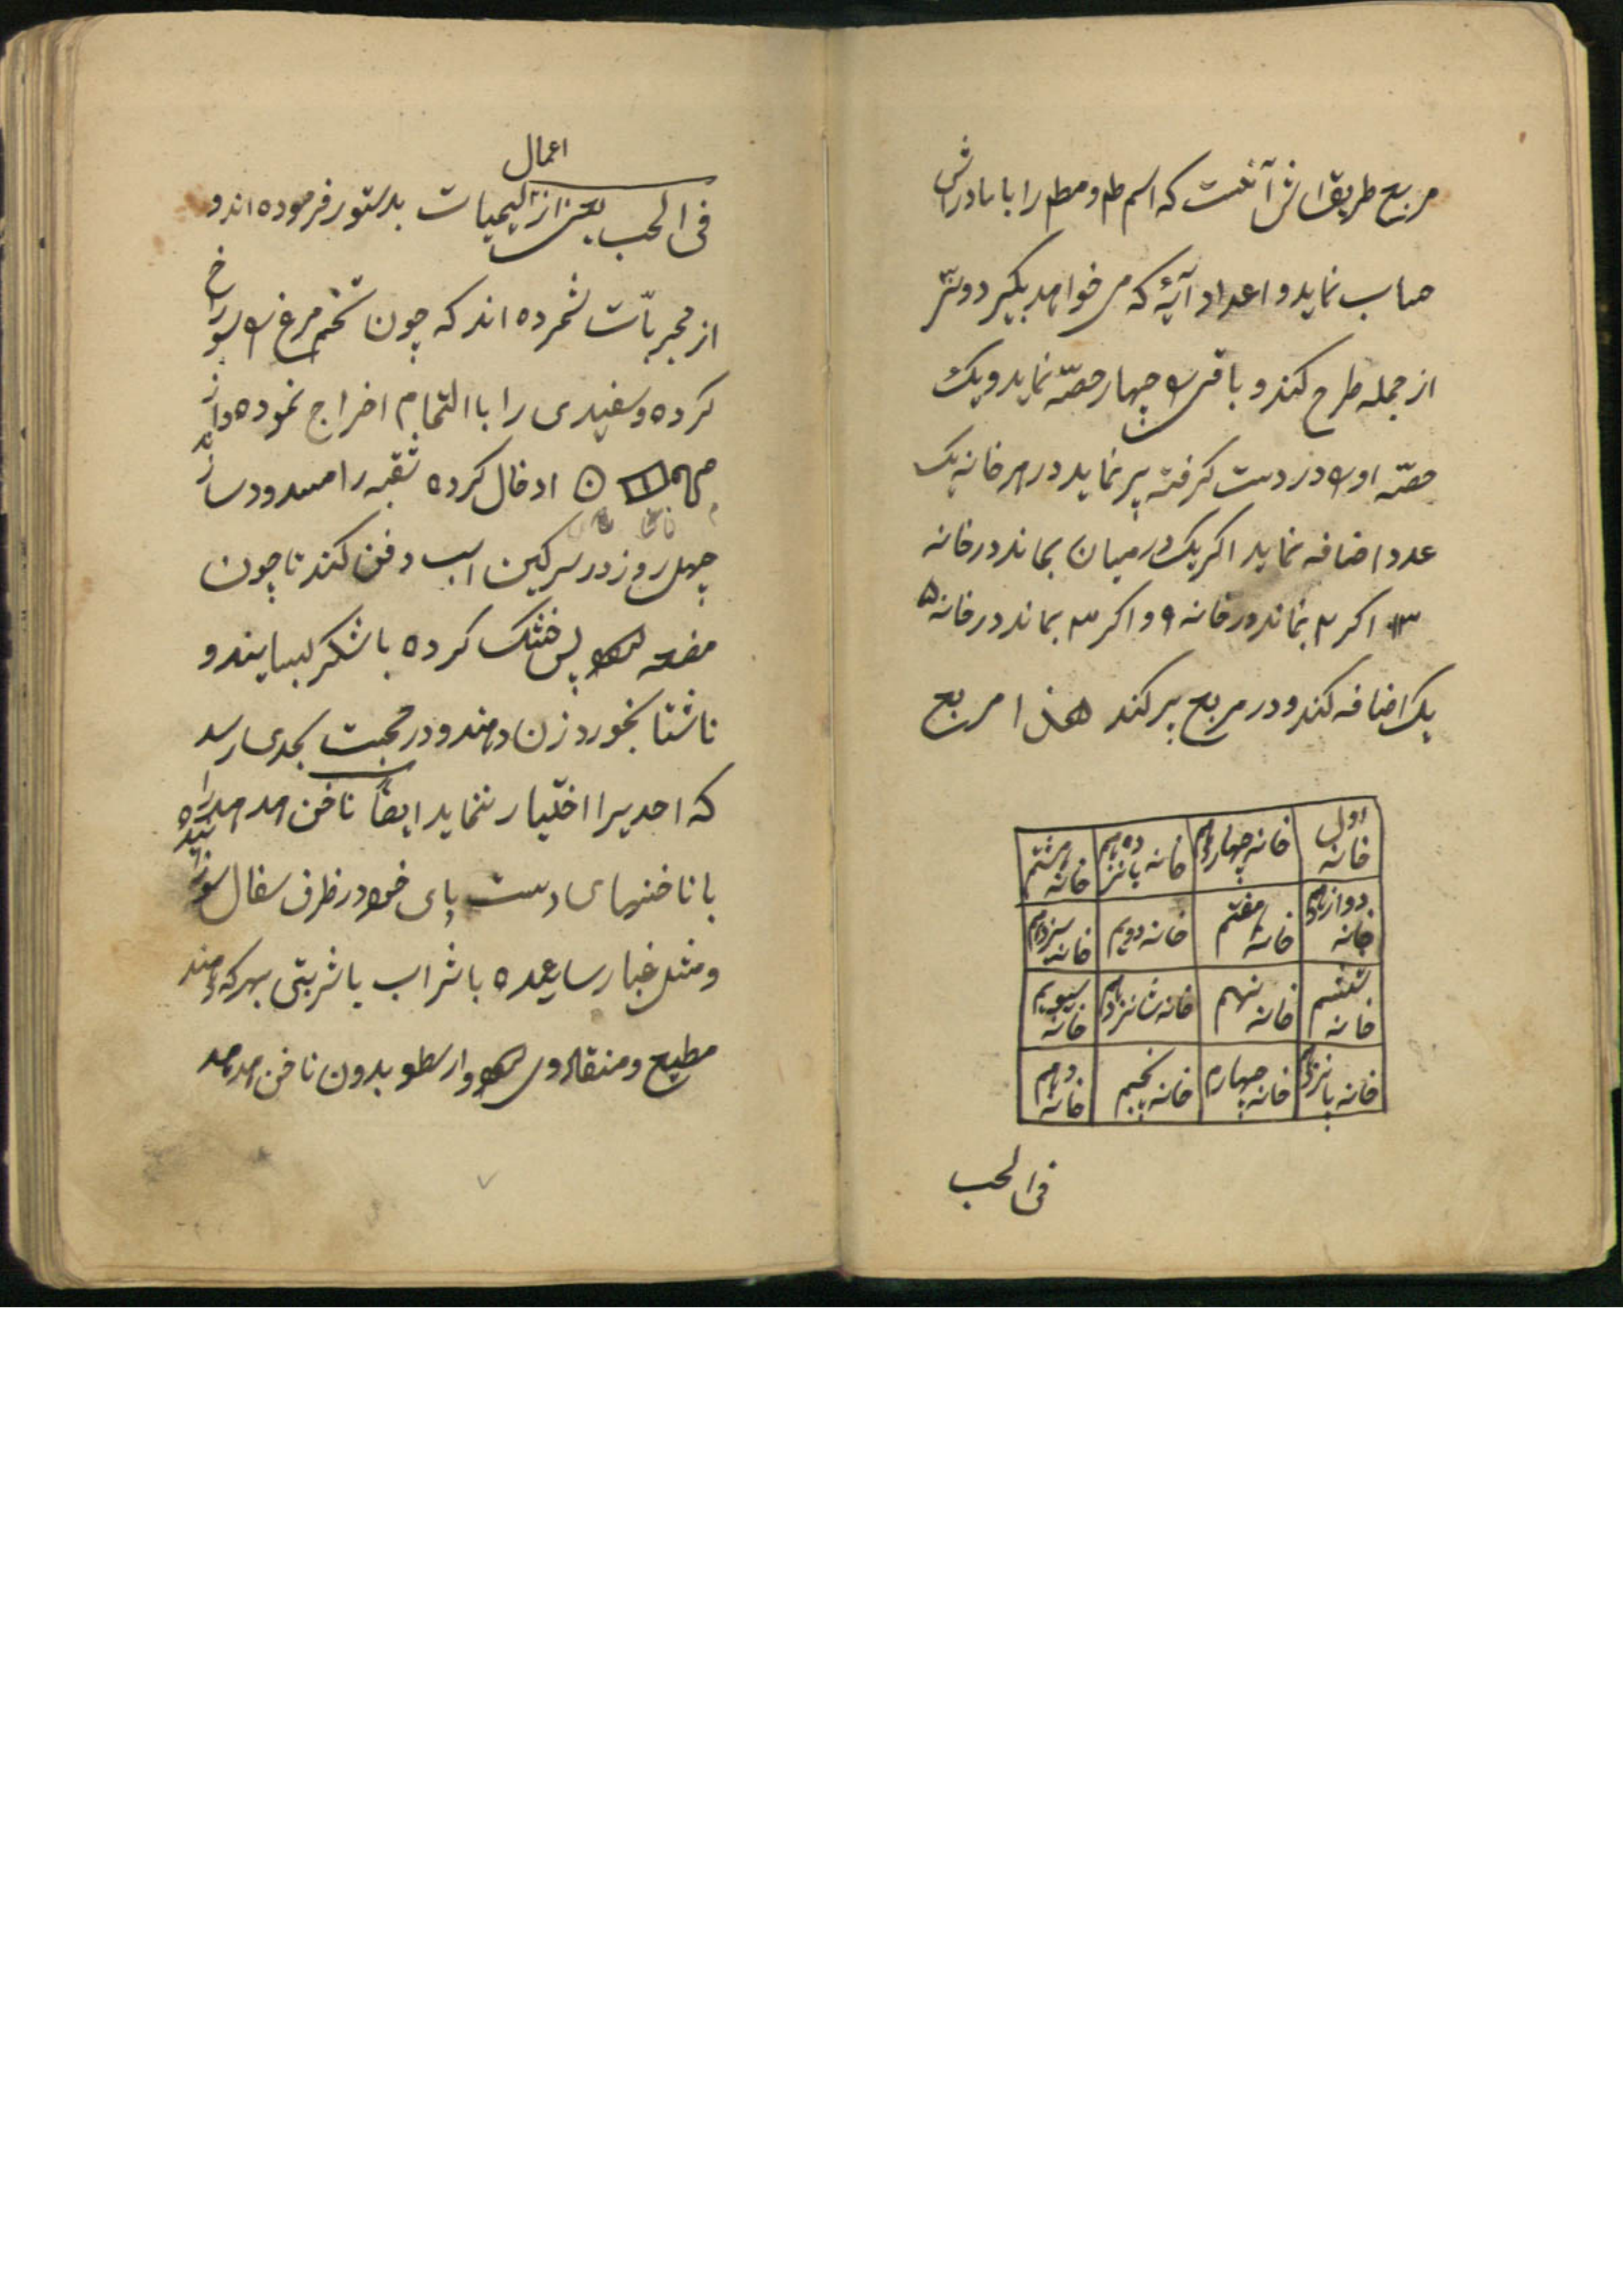 مربع طریق اش آنست که اسم ط و مط را با مادرانش
حساب نماید و اعداد آیهٔ که می خواهد بگیرد و سی
از جمله طرح کند و باقی را چهار حصّه نماید و یک
حصّه او را در دست گرفته پر نماید در هر خانه یک
عدد اضافه نماید اکر یک در میان بماند در خانه
۱۳ اکر ۲ بماند در خانه ۹ و اکر ۳ بماند در خانه ۵
یک اضافه کند و در مربع پر کند هذا مربع
خانه اول خانه چهاردهم خانه پانزدهم خانه هشتم
خانه دوازدهم خانه هفتم خانه دویم خانه سیزدهم
خانه ششم خانه نهم خانه شانزدهم خانه سیویم
خانه پانزدهم خانه چهارم خانه پنجم خانه دهم
فی الحب
اعمال
فی الحب بعضی از لیمیات بدستور فرموده اند و
از مجربّات شمرده اند که چون تخم مرغ را سوراخ
کرده و سفیدی را با التمام اخراج نموده و از
ادخال کرده ثقبه را مسدود سازند
چهل روز در سرکین اسب دفن کنند تا چون
پس خشک کرده با شکر بسایند و
ناشتا بخورد زن دهند و در محبت بحدی رسد
که احدیرا اختیار ننماید ایضاً ناخن هدهد را
با ناخنهای دست پای خود در ظرف سفال سوزانیده
و مثل غبار ساعیده با شراب یا شربتی بهر که دهند
مطیع و منقاد وی شود و ارسطو بدون ناخن هدهد